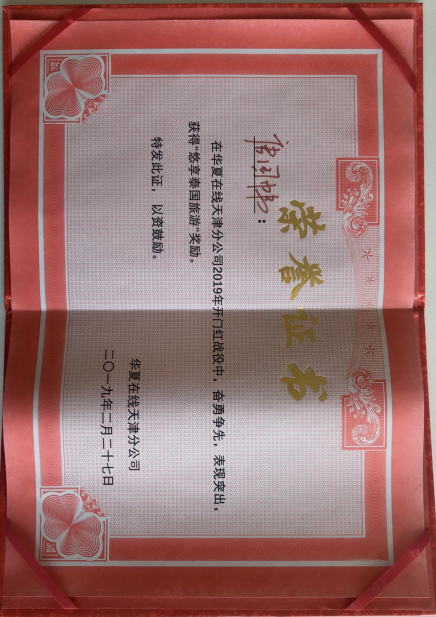 荣誉证书
唐国帅：
在华夏在线天津分公司2019年开门红战役中，奋勇争先，表现突出，
获得“悠享泰国旅游”奖励。
特发此证，以资鼓励。
华夏在线天津分公司
二〇一九年二月二十七日